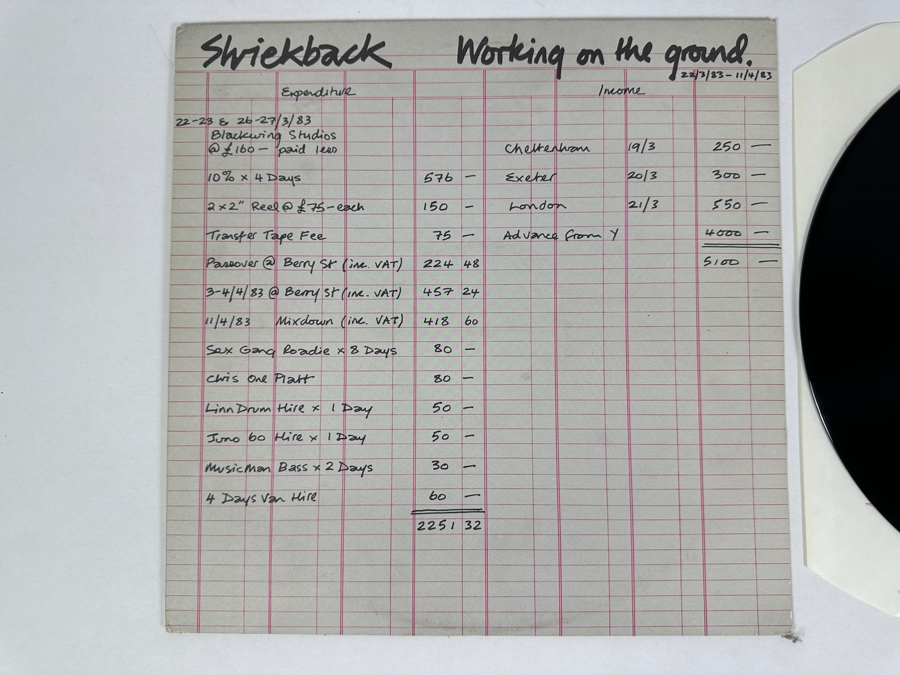 Shriekback Working on the ground.
22/3/83 - 11/4/83
Expenditure Income
22-23 & 26-27/3/83
Blackwing Studios
@ £160 - paid less Cheltenham 19/3 250 —
10% x 4 Days 576 — Exeter 20/3 300 —
2 x 2" Reel @ £75 - each 150 — London 21/3 550 —
Transfer Tape Fee 75 — Advance from Y 4000 —
Passover @ Berry St (inc. VAT) 224 48 5100 —
3-4/4/83 @ Berry St (inc. VAT) 457 24
11/4/83 Mixdown (inc. VAT) 418 60
Sex Gang Roadie x 8 Days 80 —
Chris One Platt 80 —
Linn Drum Hire x 1 Day 50 —
Juno 60 Hire x 1 Day 50 —
MusicMan Bass x 2 Days 30 —
4 Days Van Hire 60 —
2251 32